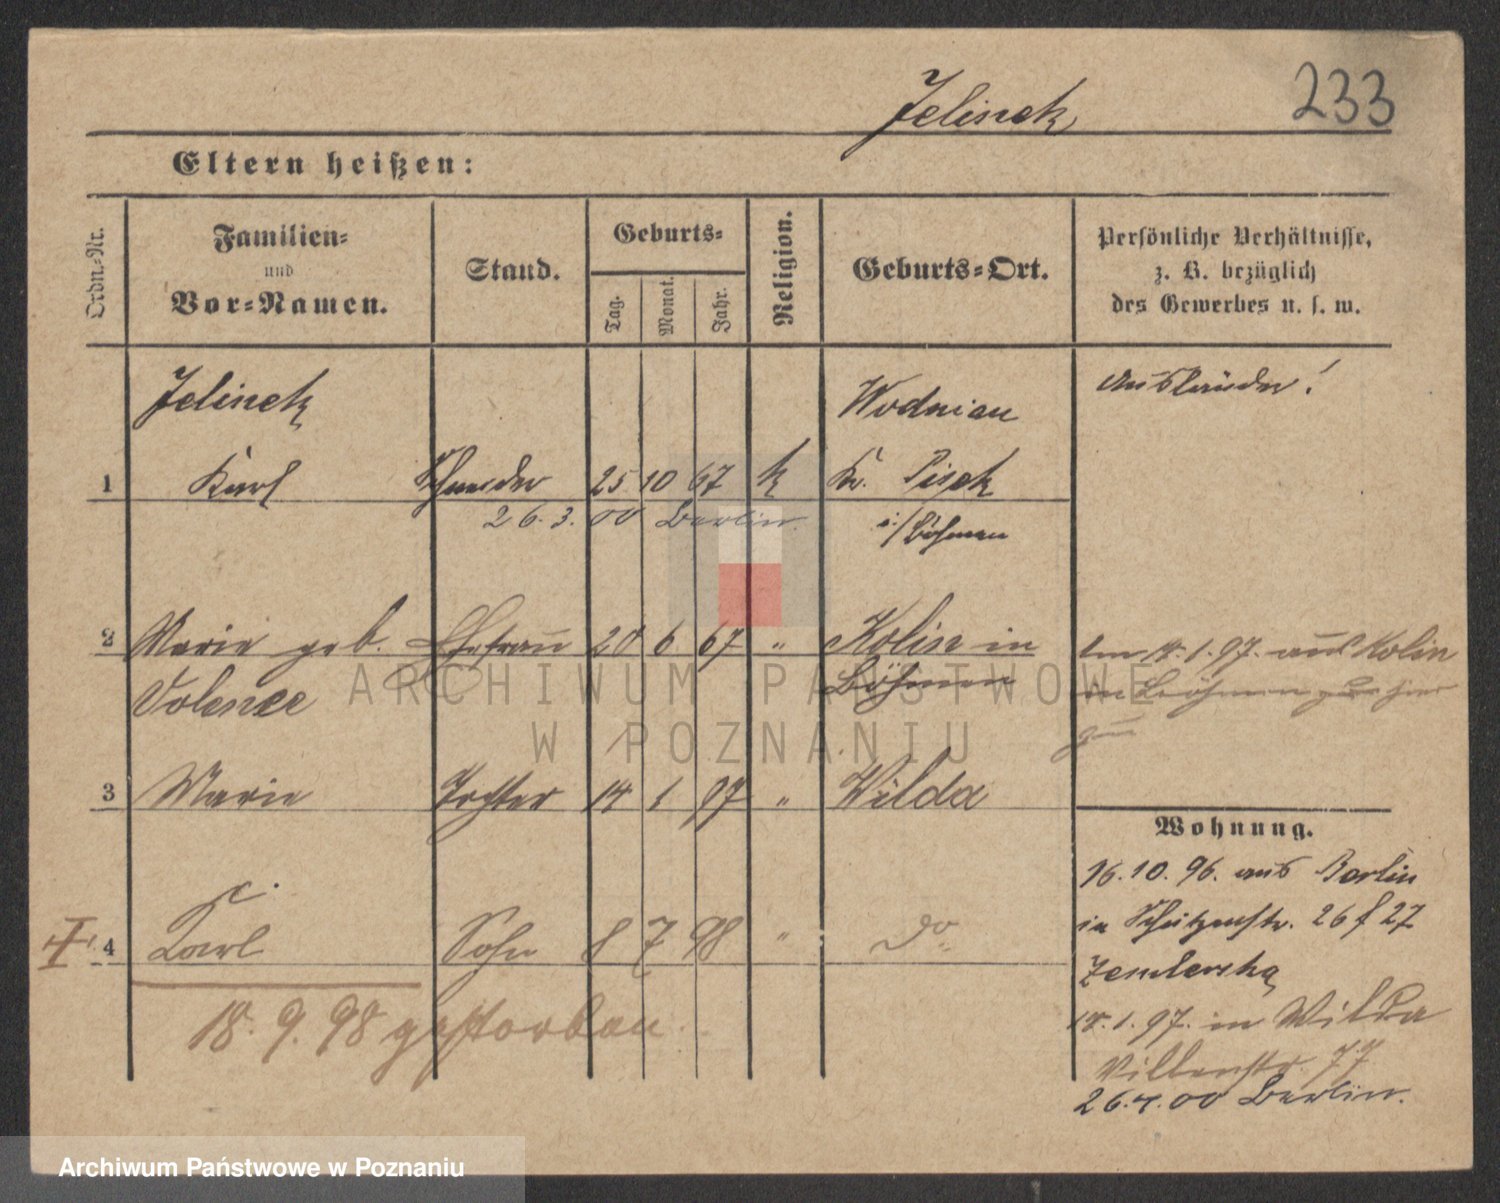 Jelinek
233
Eltern heißen:
Ordn.-Nr.
Familien-
und
Vor-Namen.
Stand.
Geburts-
Tag.
Monat.
Jahr.
Religion.
Geburts-Ort.
Persönliche Verhältnisse,
z. B. bezüglich
des Gewerbes u. s. w.
Jelinek
Wodnian
Ausländer!
1 Karl Schneider 25 10 67 k Kr. Pisek
26.3.00 Berlin.
i/Böhmen
2 Marie geb. Ehefrau 28 6 67 " Kolin in
Volenec Böhmen
1.97. aus Kolin
in Böhmen
3 Marie Tochter 14 1 97 " Wilda
Wohnung.
16.10.96. aus Berlin
in Schützenstr. 26 f 27
4 Karl Sohn 8 7 98 " do
18.9.98 gestorben.
1.97. in Wilda
77
26.4.00 Berlin.
ARCHIWUM PAŃSTWOWE
W POZNANIU
Archiwum Państwowe w Poznaniu